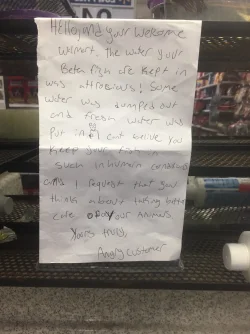 NO
Hello, and your welcome
walmart. The water your
Beta fish are kept in
was atrocious! Some
water was dumped out
and fresh water was
Put in. I cant belive you
keep your fish
such inhuman
I request that you
think about taking better
care of your Animals.
Yours truly,
Angry customer